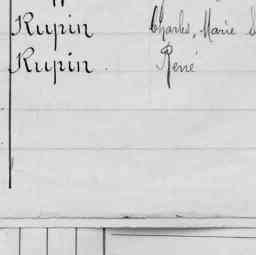 Rupin Charles, Marie
Rupin René